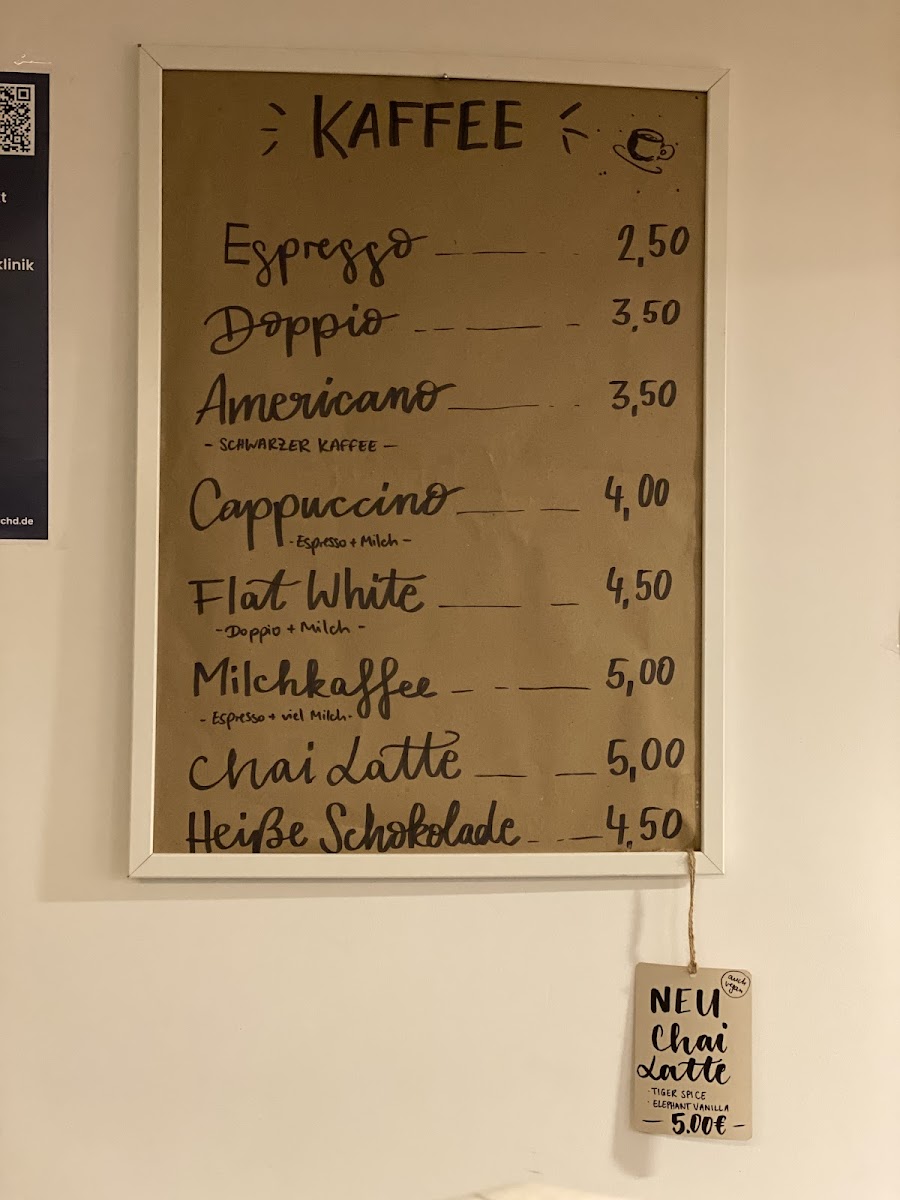 t
klinik
chd.de
KAFFEE
Espresso 2,50
Doppio 3,50
Americano 3,50
- SCHWARZER KAFFEE -
Cappuccino 4,00
- Espresso + Milch -
Flat White 4,50
- Doppio + Milch -
Milchkaffee 5,00
- Espresso + viel Milch -
Chai Latte 5,00
Heiße Schokolade 4,50
auch
vegan
NEU
Chai
Latte
· TIGER SPICE
· ELEPHANT VANILLA
- 5.00€ -